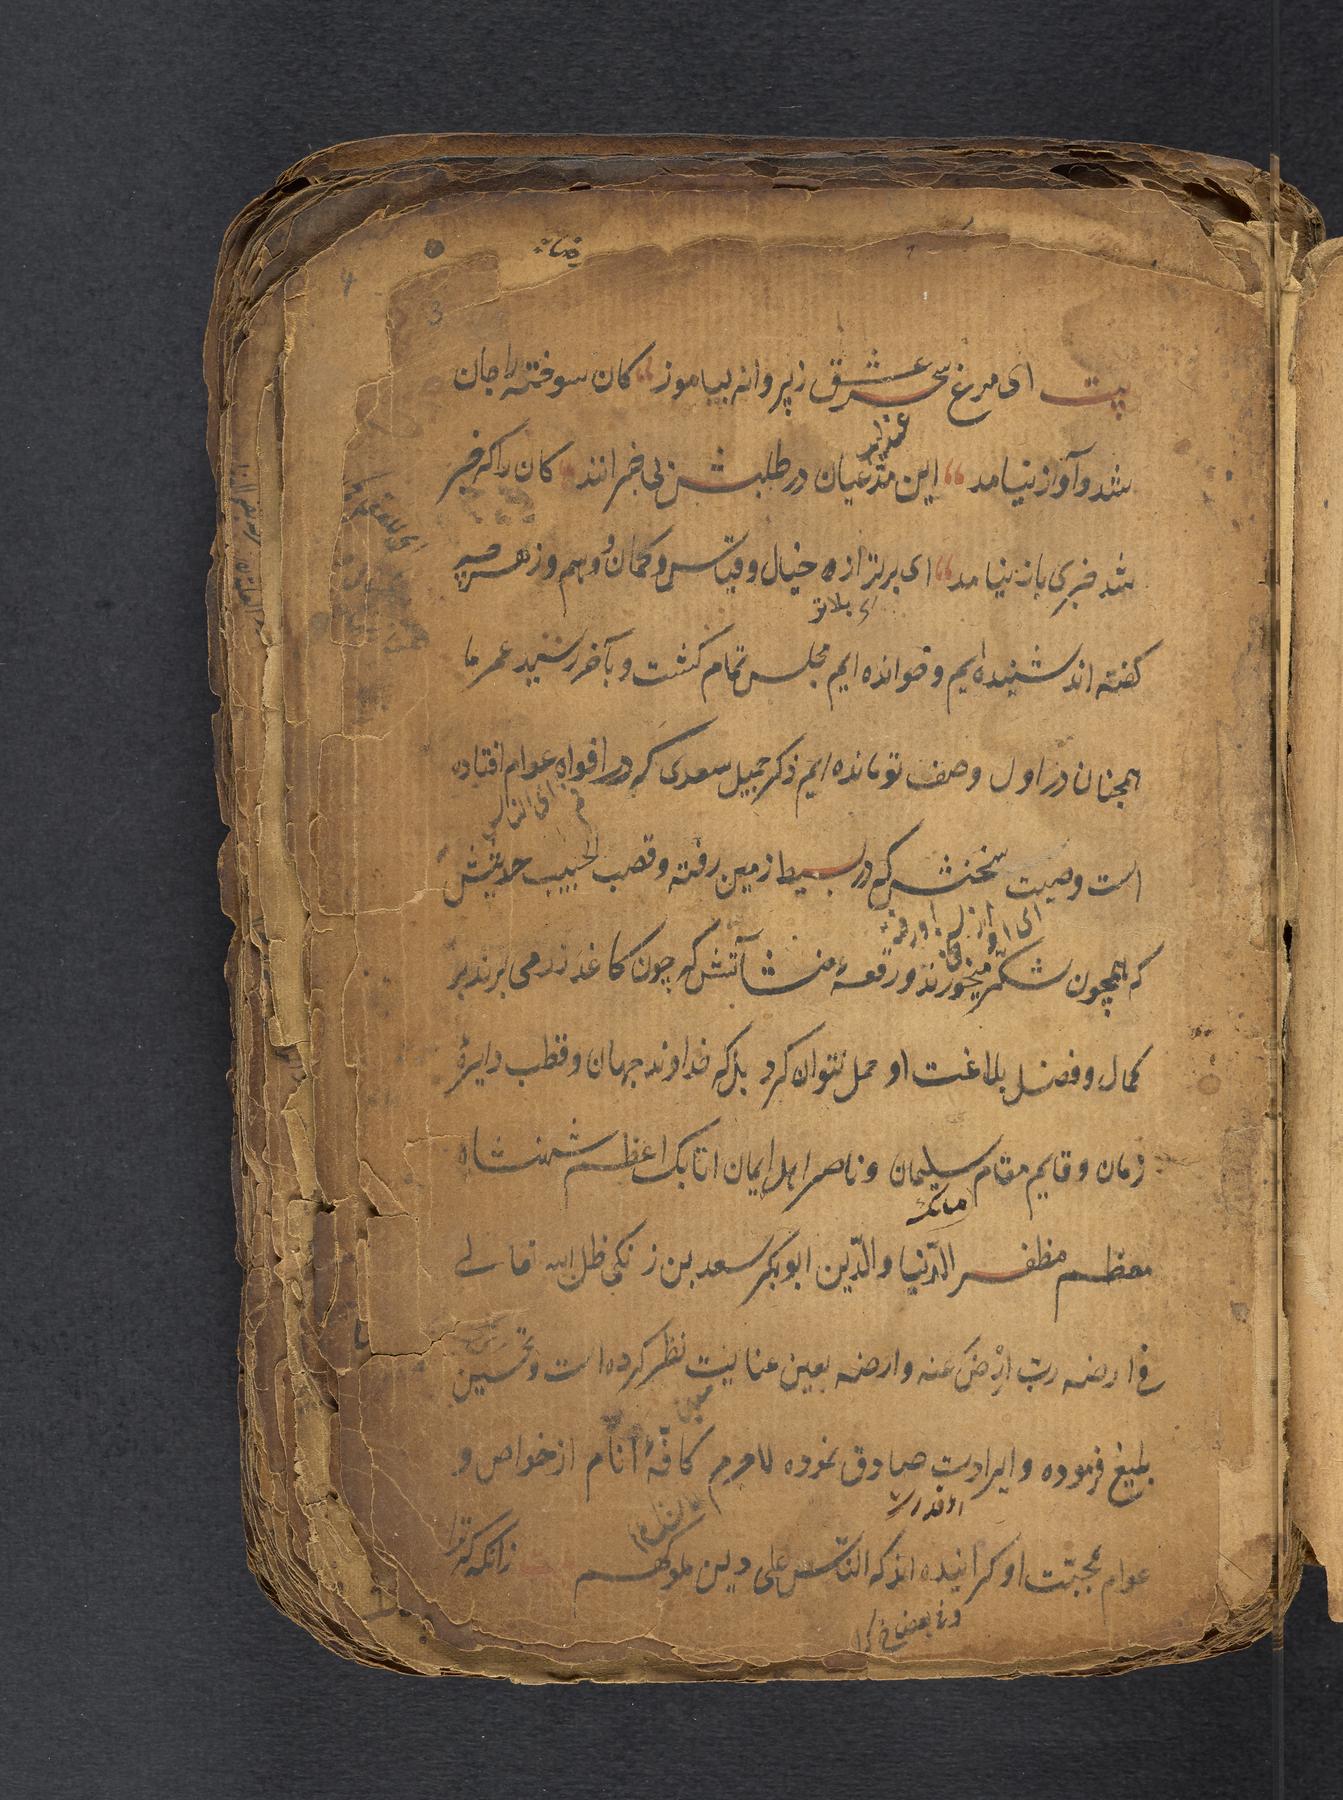 بیت ای مرغ سحر عشق ز پروانه بیاموز کان سوخته را جان
شد و آواز نیامد این مدعیان در طلبش بی خبرانند کان را که خبر
شد خبری باز نیامد ای برتر از خیال و قیاس و گمان و وهم و ز هر چه
گفته اند شنیده ایم و خوانده ایم مجلس تمام گشت و بآخر رسید عمر ما
همچنان در اول وصف تو مانده ایم ذکر جمیل سعدی که در افواه عوام افتاده
است وصیت سخنش که در بسیط زمین رفته و قصب الحبیب حدیثش
که همچون شکر میخورند و رقعهٔ منشآتش که چون کاغذ زر می برند بر
کمال و فضل بلاغت او حمل نتوان کرد بلکه خداوند جهان و قطب دایرهٔ
زمان و قایم مقام سلیمان و ناصر اهل ایمان اتابک اعظم شهنشاه
معظم مظفر الدّنیا والدّین ابوبکر سعد بن زنگی ظل الله تعالے
فی ارضه ربّ ارض عنه و ارضه بعین عنایت نظر کرده است و تحسین
بلیغ فرموده و ایرادت صادق نموده لاجرم کافّهٔ انام از خواص و
عوام بمحبّت او گرائیده اند که النّاس علی دین ملوکهم بیت زانگه که ترا